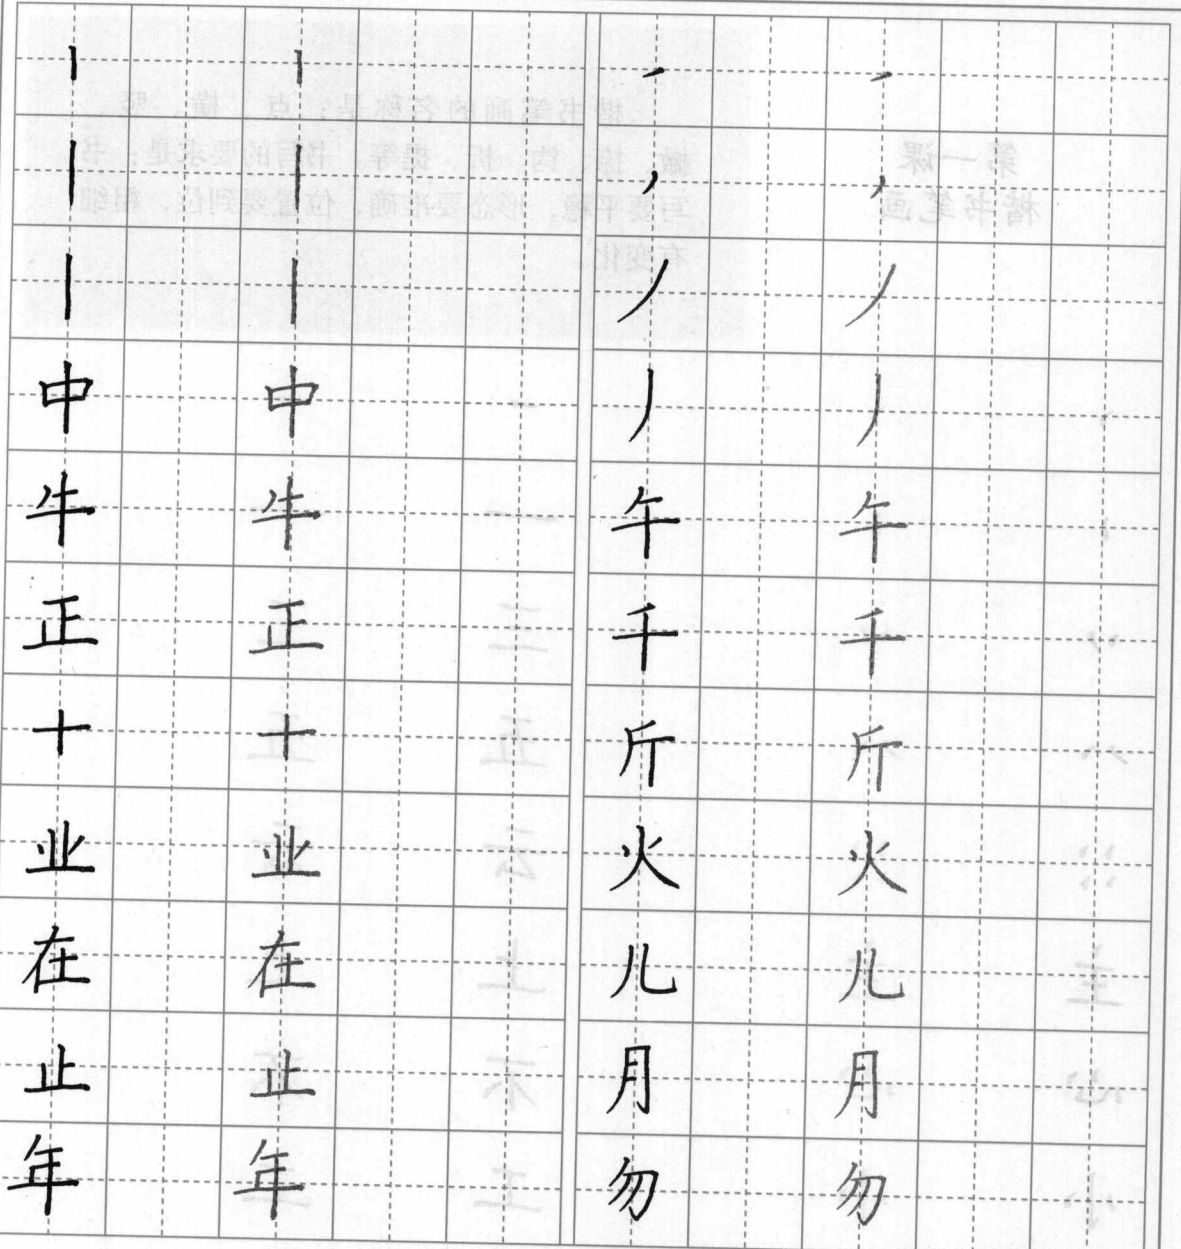 丨丨丨中牛正十业在止年
丨丨丨中牛正十业在止年
丿丿丿丿午千斤火儿月勿
丿丿丿丿午千斤火儿月勿